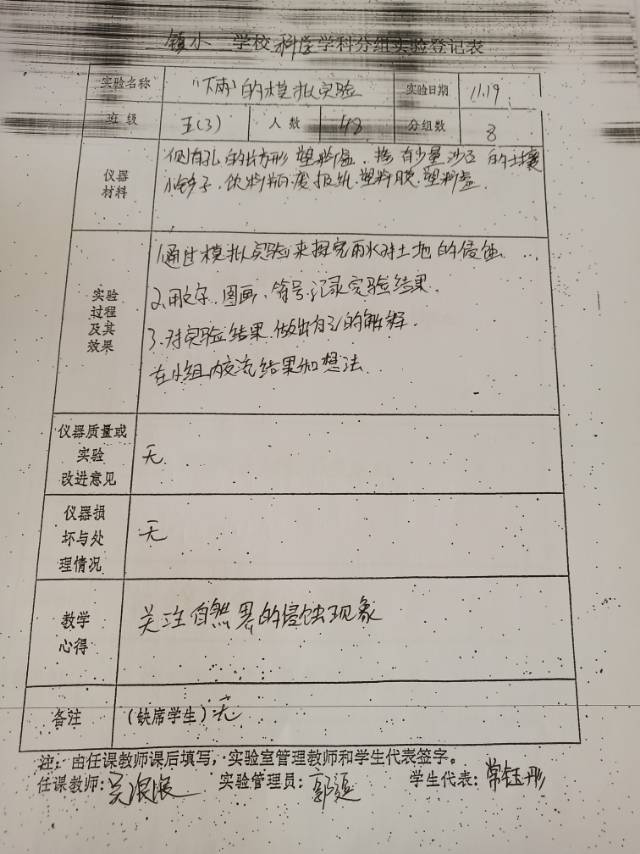 镇小 学校 科学 学科分组实验登记表
实验名称 "下雨"的模拟实验 实验日期 11.19
班级 五(3) 人数 48 分组数 8
仪器材料 侧有孔的长方形塑料盒、掺有少量沙子的土壤
小铲子、饮料瓶、废报纸、塑料膜、塑料盒
实验过程及其效果 1.通过模拟实验来探究雨水对土地的侵蚀
2.用文字、图画、符号记录实验结果.
3.对实验结果做出自己的解释.
在小组内交流结果和想法.
仪器质量或实验改进意见 无
仪器损坏与处理情况 无
教学心得 关注自然界的侵蚀现象
备注 (缺席学生) 无
注: 由任课教师课后填写, 实验室管理教师和学生代表签字。
任课教师: 实验管理员: 学生代表: 常钰彤